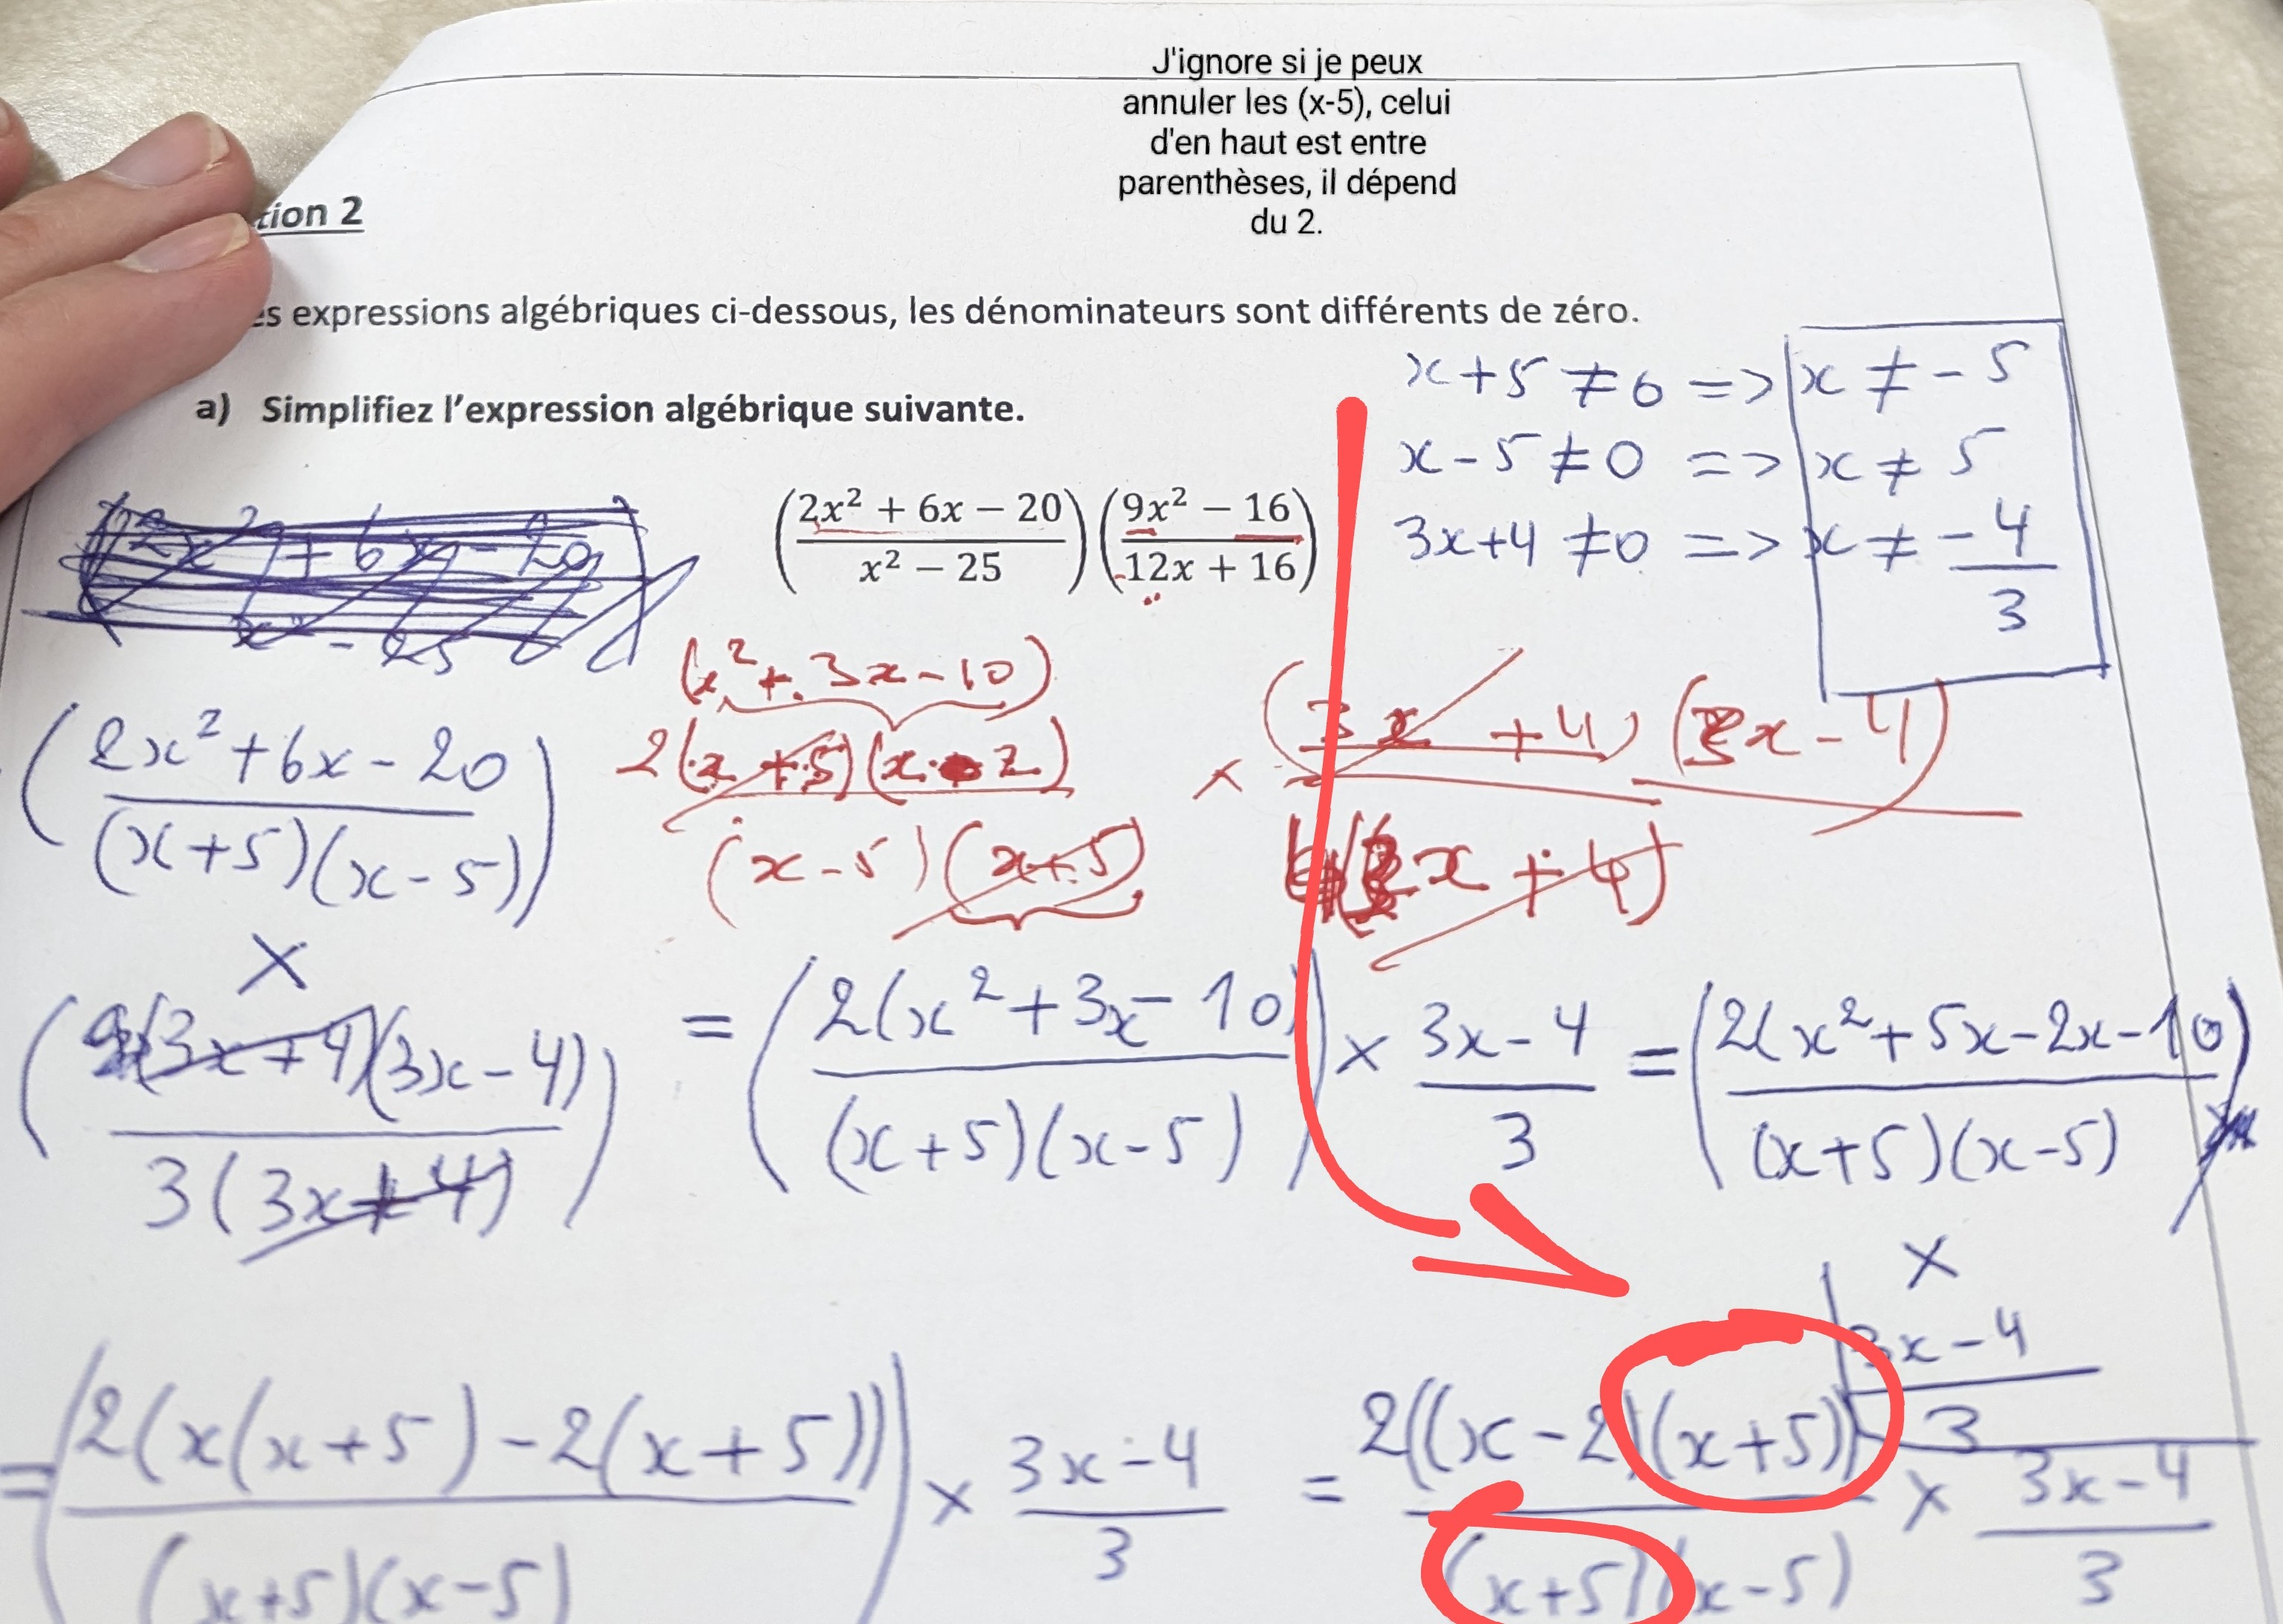 J'ignore si je peux
annuler les (x-5), celui
d'en haut est entre
parenthèses, il dépend
du 2.
tion 2
es expressions algébriques ci-dessous, les dénominateurs sont différents de zéro.
x+5 ≠ 0 => x ≠ -5
a) Simplifiez l'expression algébrique suivante.
x-5 ≠ 0 => x ≠ 5
(2x² + 6x − 20 / x² − 25)(9x² − 16 / 12x + 16)
3x+4 ≠ 0 => x ≠ -4/3
(2x² + 6x - 20
x² - 25
(x²+3x-10)
(2x²+6x-20 / (x+5)(x-5))
2(x+5)(x-2) / (x-5)(x+5) × (3x+4)(3x-4) / (3x+4)
×
((3x+4)(3x-4) / 3(3x+4)) = (2(x²+3x-10) / (x+5)(x-5)) × 3x-4 / 3 = (2(x²+5x-2x-10) / (x+5)(x-5))
× 3x-4 / 3
= (2(x(x+5)-2(x+5)) / (x+5)(x-5)) × 3x-4 / 3 = 2((x-2)(x+5)) / (x+5)(x-5) × 3x-4 / 3